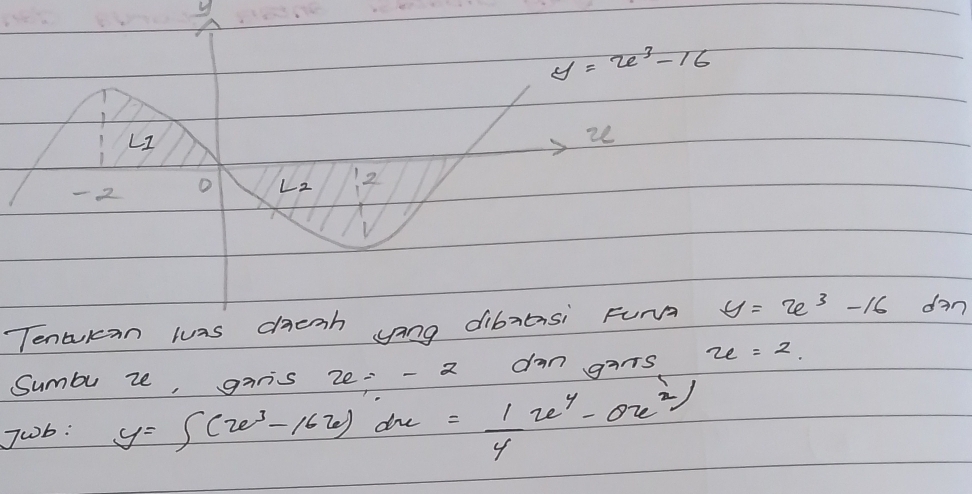 y
y = x³ - 16
x
L1
L2
2
-2
0
Tentukan luas daerah yang dibatasi kurva y = x³ - 16 dan
Sumbu x, garis x = -2 dan garis x = 2.
Jwb: y = ∫(x³ - 16x) dx = 1/4 x⁴ - 8x²)